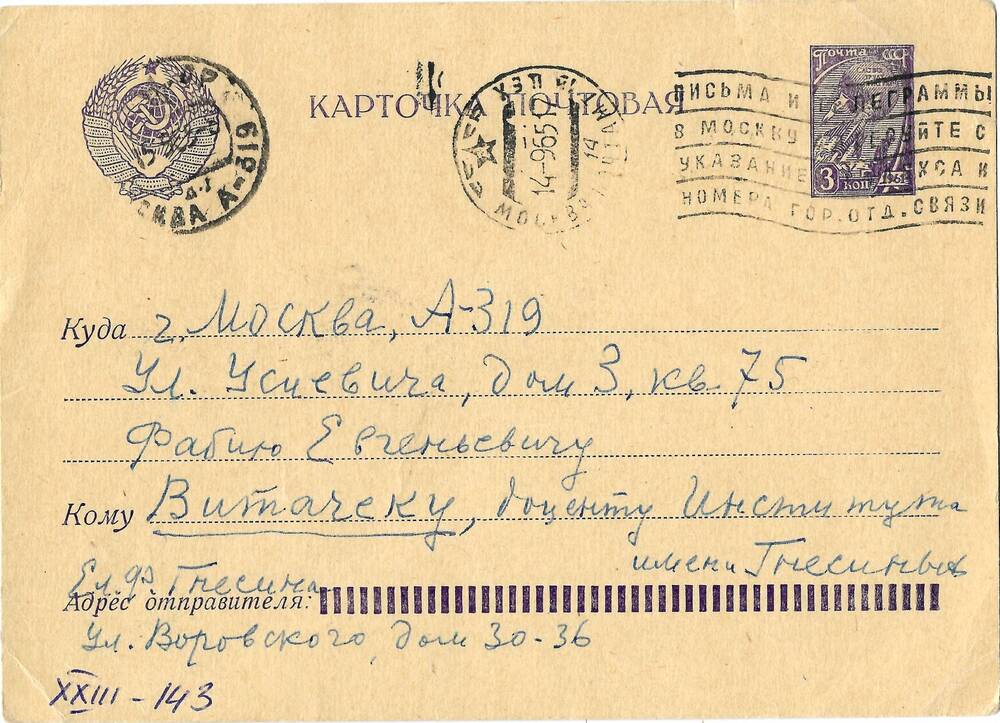 КАРТОЧКА ПОЧТОВАЯ
Почта СССР
3 коп 1961
МОСКВА А-319
МОСКВА
14-965 17
14
ПИСЬМА И ТЕЛЕГРАММЫ
В МОСКВУ
УКАЗАНИЕ И
НОМЕРА ГОР. ОТД. СВЯЗИ
Куда г. Москва, А-319
Ул. Усиевича, дом 3, кв. 75
Фабию Евгеньевичу
Кому Витачеку, доценту Института
имени Гнесиных
Ел. Гнесина
Адрес отправителя:
Ул. Воровского, дом 30-36
XXIII - 143